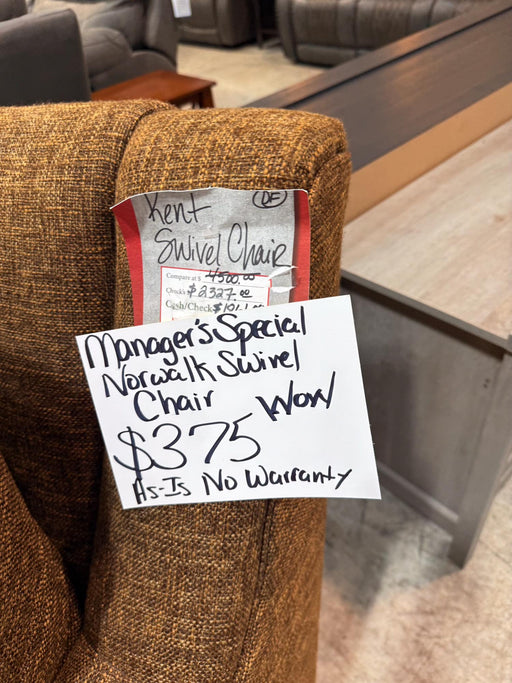 Kent
DF
Swivel Chair
Compare at $ 4500.00
Checks $2327.00
Cash/Check $
Manager's Special
Norwalk Swivel
Chair WOW
$375
As-Is No Warranty